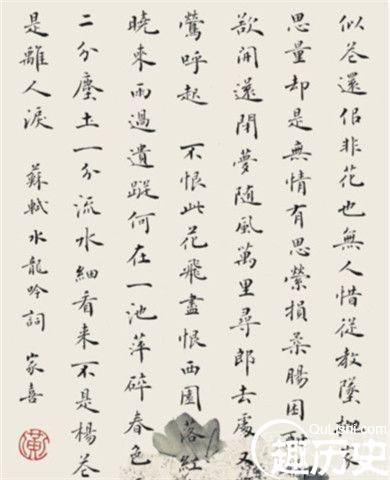 似花還佀非花也無人惜從教墜
思量却是無情有思縈損柔腸困
欲開還閉夢随風萬里尋郎去處又
鶯呼起 不恨此花飛盡恨西園落紅
曉來雨過遺蹤何在一池萍碎春色
二分塵土一分流水細看来不是楊花
是離人淚 蘇軾水龍吟詞 家喜
QuLishi.com
趣历史